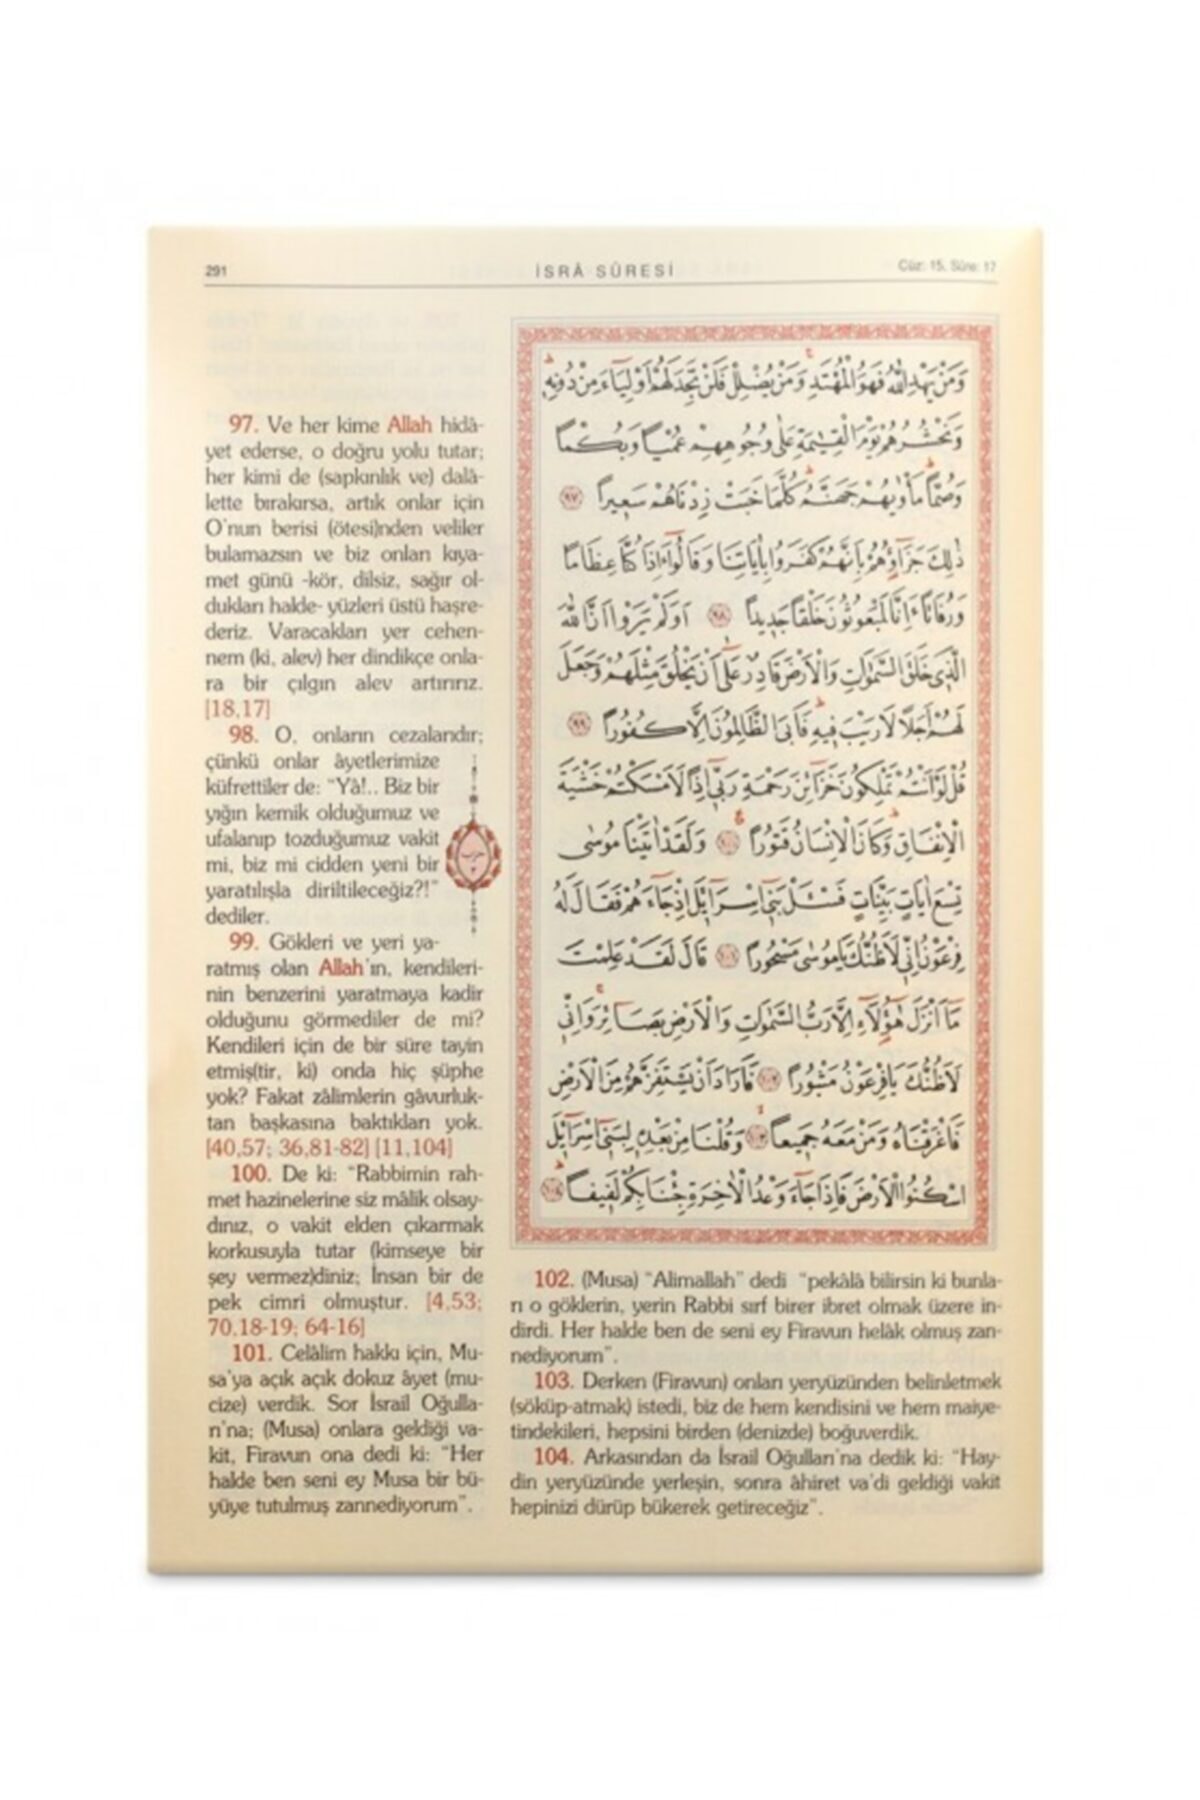 291
İSRÂ SÛRESİ
Cüz: 15, Sûre: 17
97. Ve her kime Allah hidâ-
yet ederse, o doğru yolu tutar;
her kimi de (sapkınlık ve) dalâ-
lette bırakırsa, artık onlar için
O'nun berisi (ötesi)nden veliler
bulamazsın ve biz onları kıya-
met günü -kör, dilsiz, sağır ol-
dukları halde- yüzleri üstü haşre-
deriz. Varacakları yer cehen-
nem (ki, alev) her dindikçe onla-
ra bir çılgın alev artırırız.
[18,17]
98. O, onların cezalarıdır;
çünkü onlar âyetlerimize
küfrettiler de: "Yâ!.. Biz bir
yığın kemik olduğumuz ve
ufalanıp tozduğumuz vakit
mi, biz mi cidden yeni bir
yaratılışla diriltileceğiz?!"
dediler.
99. Gökleri ve yeri ya-
ratmış olan Allah'ın, kendileri-
nin benzerini yaratmaya kadir
olduğunu görmediler de mi?
Kendileri için de bir süre tayin
etmiş(tir, ki) onda hiç şüphe
yok? Fakat zâlimlerin gâvurluk-
tan başkasına baktıkları yok.
[40,57; 36,81-82] [11,104]
100. De ki: "Rabbimin rah-
met hazinelerine siz mâlik olsay-
dınız, o vakit elden çıkarmak
korkusuyla tutar (kimseye bir
şey vermez)diniz; İnsan bir de
pek cimri olmuştur. [4,53;
70,18-19; 64-16]
101. Celâlim hakkı için, Mu-
sa'ya açık açık dokuz âyet (mu-
cize) verdik. Sor İsrail Oğulla-
rı'na; (Musa) onlara geldiği va-
kit, Firavun ona dedi ki: "Her
halde ben seni ey Musa bir bü-
yüye tutulmuş zannediyorum".
وَمَنْ يَهْدِ اللّٰهُ فَهُوَ الْمُهْتَدِ وَمَنْ يُضْلِلْ فَلَنْ تَجِدَ لَهُمْ اَوْلِيَٓاءَ مِنْ دُونِه۪
وَنَحْشُرُهُمْ يَوْمَ الْقِيٰمَةِ عَلٰى وُجُوهِهِمْ عُمْيًا وَبُكْمًا
وَصُمًّا مَأْوٰيهُمْ جَهَنَّمُ كُلَّمَا خَبَتْ زِدْنَاهُمْ سَع۪يرًا ﴿٩٧﴾
ذٰلِكَ جَزَٓاؤُ۬هُمْ بِاَنَّهُمْ كَفَرُوا بِاٰيَاتِنَا وَقَالُٓوا ءَاِذَا كُنَّا عِظَامًا
وَرُفَاتًا ءَاِنَّا لَمَبْعُوثُونَ خَلْقًا جَد۪يدًا ﴿٩٨﴾ اَوَلَمْ يَرَوْا اَنَّ اللّٰهَ
الَّذ۪ي خَلَقَ السَّمٰوَاتِ وَالْاَرْضَ قَادِرٌ عَلٰٓى اَنْ يَخْلُقَ مِثْلَهُمْ وَجَعَلَ
لَهُمْ اَجَلًا لَا رَيْبَ ف۪يهِ فَاَبَى الظَّالِمُونَ اِلَّا كُفُورًا ﴿٩٩﴾
قُلْ لَوْ اَنْتُمْ تَمْلِكُونَ خَزَٓائِنَ رَحْمَةِ رَبّ۪ٓي اِذًا لَاَمْسَكْتُمْ خَشْيَةَ
الْاِنْفَاقِ وَكَانَ الْاِنْسَانُ قَتُورًا ﴿١٠٠﴾ وَلَقَدْ اٰتَيْنَا مُوسٰى
تِسْعَ اٰيَاتٍ بَيِّنَاتٍ فَسْـَٔلْ بَن۪ٓي اِسْرَٓائ۪لَ اِذْ جَٓاءَهُمْ فَقَالَ لَهُ
فِرْعَوْنُ اِنّ۪ي لَاَظُنُّكَ يَا مُوسٰى مَسْحُورًا ﴿١٠١﴾ قَالَ لَقَدْ عَلِمْتَ
مَٓا اَنْزَلَ هٰٓؤُ۬لَٓاءِ اِلَّا رَبُّ السَّمٰوَاتِ وَالْاَرْضِ بَصَٓائِرَ وَاِنّ۪ي
لَاَظُنُّكَ يَا فِرْعَوْنُ مَثْبُورًا ﴿١٠٢﴾ فَاَرَادَ اَنْ يَسْتَفِزَّهُمْ مِنَ الْاَرْضِ
فَاَغْرَقْنَاهُ وَمَنْ مَعَهُ جَم۪يعًا ﴿١٠٣﴾ وَقُلْنَا مِنْ بَعْدِه۪ لِبَن۪ٓي اِسْرَٓائ۪لَ
اسْكُنُوا الْاَرْضَ فَاِذَا جَٓاءَ وَعْدُ الْاٰخِرَةِ جِئْنَا بِكُمْ لَف۪يفًا ﴿١٠٤﴾
102. (Musa) "Alimallah" dedi "pekâlâ bilirsin ki bunla-
rı o göklerin, yerin Rabbi sırf birer ibret olmak üzere in-
dirdi. Her halde ben de seni ey Firavun helâk olmuş zan-
nediyorum".
103. Derken (Firavun) onları yeryüzünden belinletmek
(söküp-atmak) istedi, biz de hem kendisini ve hem maiye-
tindekileri, hepsini birden (denizde) boğuverdik.
104. Arkasından da İsrail Oğulları'na dedik ki: "Hay-
din yeryüzünde yerleşin, sonra âhiret va'di geldiği vakit
hepinizi dürüp bükerek getireceğiz".